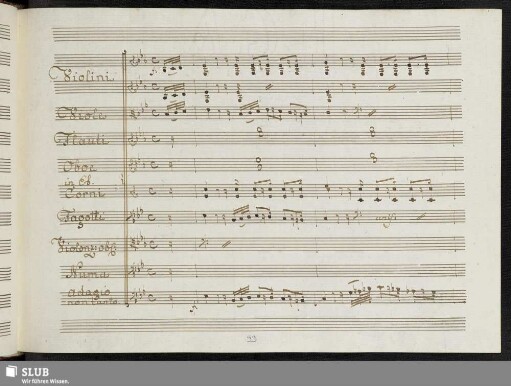 Violini
Viole
Flauti
Oboe
in Eb.
Corni
Fagotti
Numa
Adagio
non tanto
23
SLUB
Wir führen Wissen.